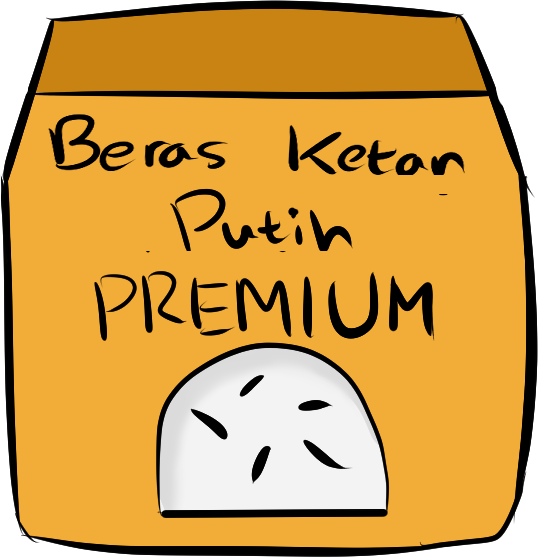 Beras Ketan
Putih
PREMIUM